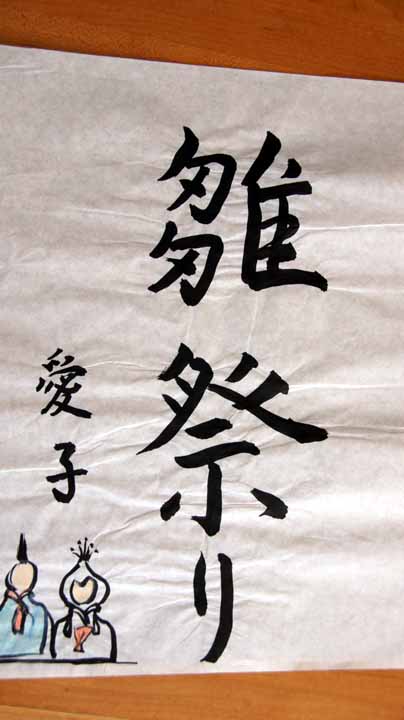 雛祭り
愛子